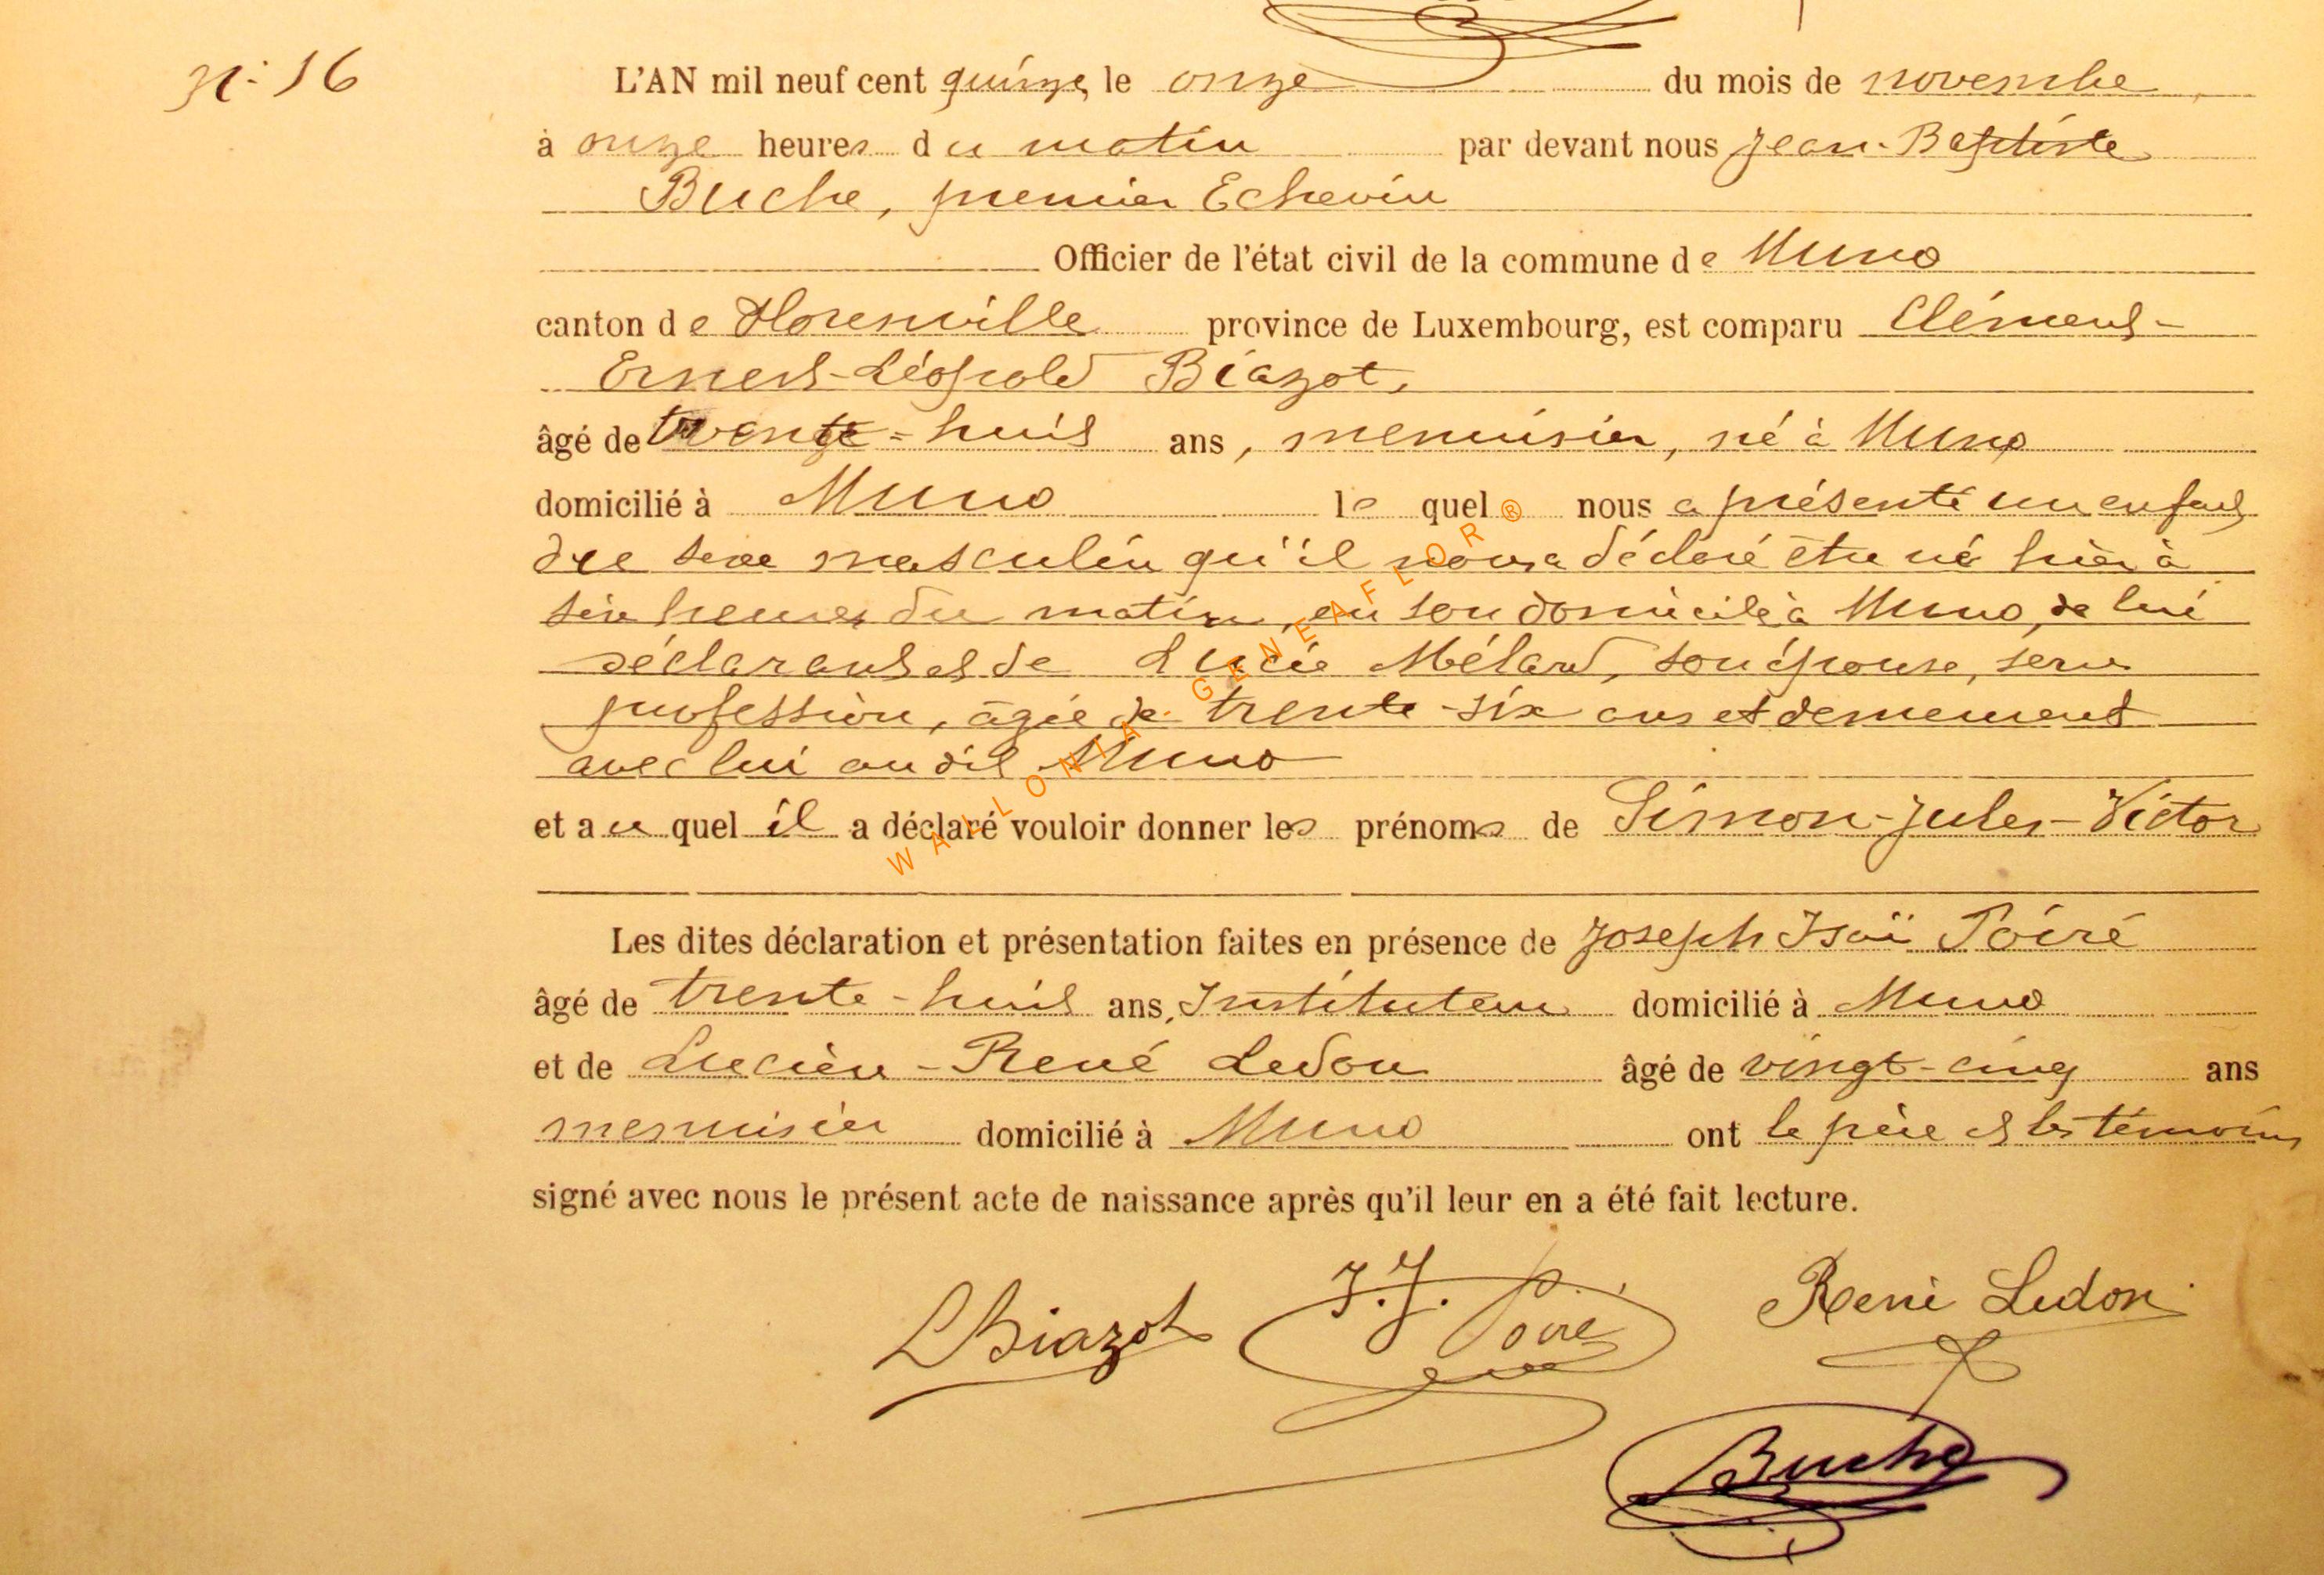 N° 16
L'AN mil neuf cent quinze, le onze du mois de novembre
à onze heures du matin par devant nous Jean-Baptiste
Buche, premier Echevin
Officier de l'état civil de la commune de Muno
canton de Florenville province de Luxembourg, est comparu Clément-
Ernest-Léopold Biazot,
âgé de trente-huit ans, menuisier, né à Muno
domicilié à Muno lequel nous a présenté un enfant
du sexe masculin qu'il nous a déclaré être né hier à
six heures du matin, en son domicile à Muno, de lui
déclarant et de Lucie Mélard, son épouse, sans
profession, âgée de trente-six ans et demeurant
avec lui au dit Muno
et auquel il a déclaré vouloir donner les prénoms de Simon-Jules-Victor
Les dites déclaration et présentation faites en présence de Joseph Isaï Poiré
âgé de trente-huit ans, Instituteur domicilié à Muno
et de Lucien-René Ledon âgé de vingt-cinq ans
menuisier domicilié à Muno ont le père et les témoins
signé avec nous le présent acte de naissance après qu'il leur en a été fait lecture.
LBiazot J.J. Poiré René Ledon
Buche
WALLONIA - GENEAFLOR®